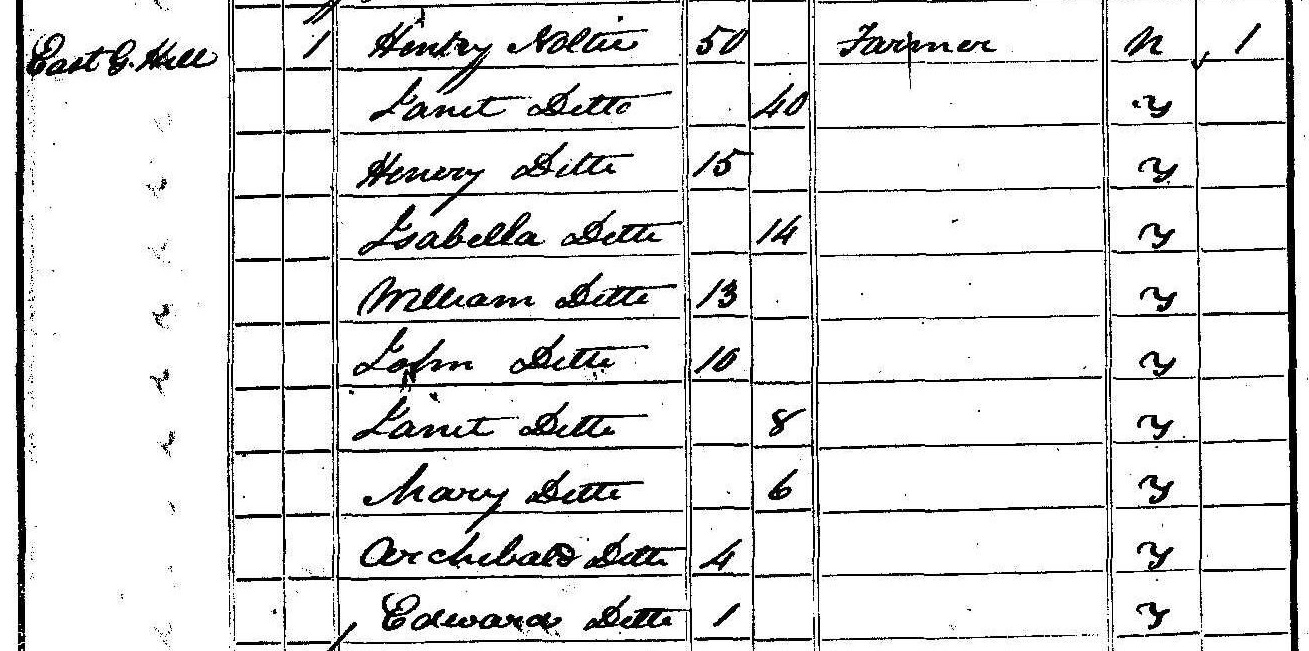 East G. Hill 1 Henry Noltie 50 Farmer N 1
Janet Ditto 40 y
Henry Ditto 15 y
Isabella Ditto 14 y
William Ditto 13 y
John Ditto 10 y
Janet Ditto 8 y
Mary Ditto 6 y
Archibald Ditto 4 y
Edward Ditto 1 y